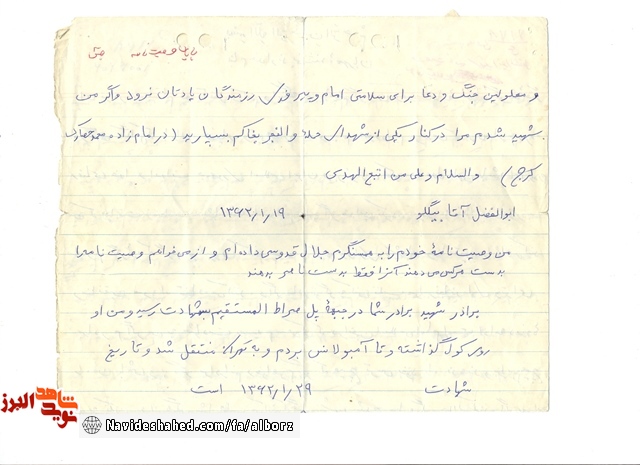 پایان وصیت نامه
و معلولین جنگ و دعا برای سلامتی امام و پیروزی رزمندگان یادتان نرود واگر من
شهید شدم مرا در کنار یکی از شهدای والفجر بخاکم بسپارید (در امام زاده محمد
کرج) والسلام و علی من اتبع الهدی
ابوالفضل آتا بیگلو ۱۳۶۲/۱/۱۹
من وصیت نامهٔ خودم را به همسنگرم جلال قدوسی داده ام و از می خواهم وصیت نامه را
بدست هرکس می دهند آنرا فقط بدست ناصر بدهند
برادر شهید برادر شما در جبههٔ پل صراط المستقیم بشهادت رسید و من او
روی کول گذاشته و تا آمبولانس بردم و به تهران منتقل شد و تاریخ
شهادت ۱۳۶۲/۱/۲۹ است
نوید شاهد البرز
Navideshahed.com/fa/alborz